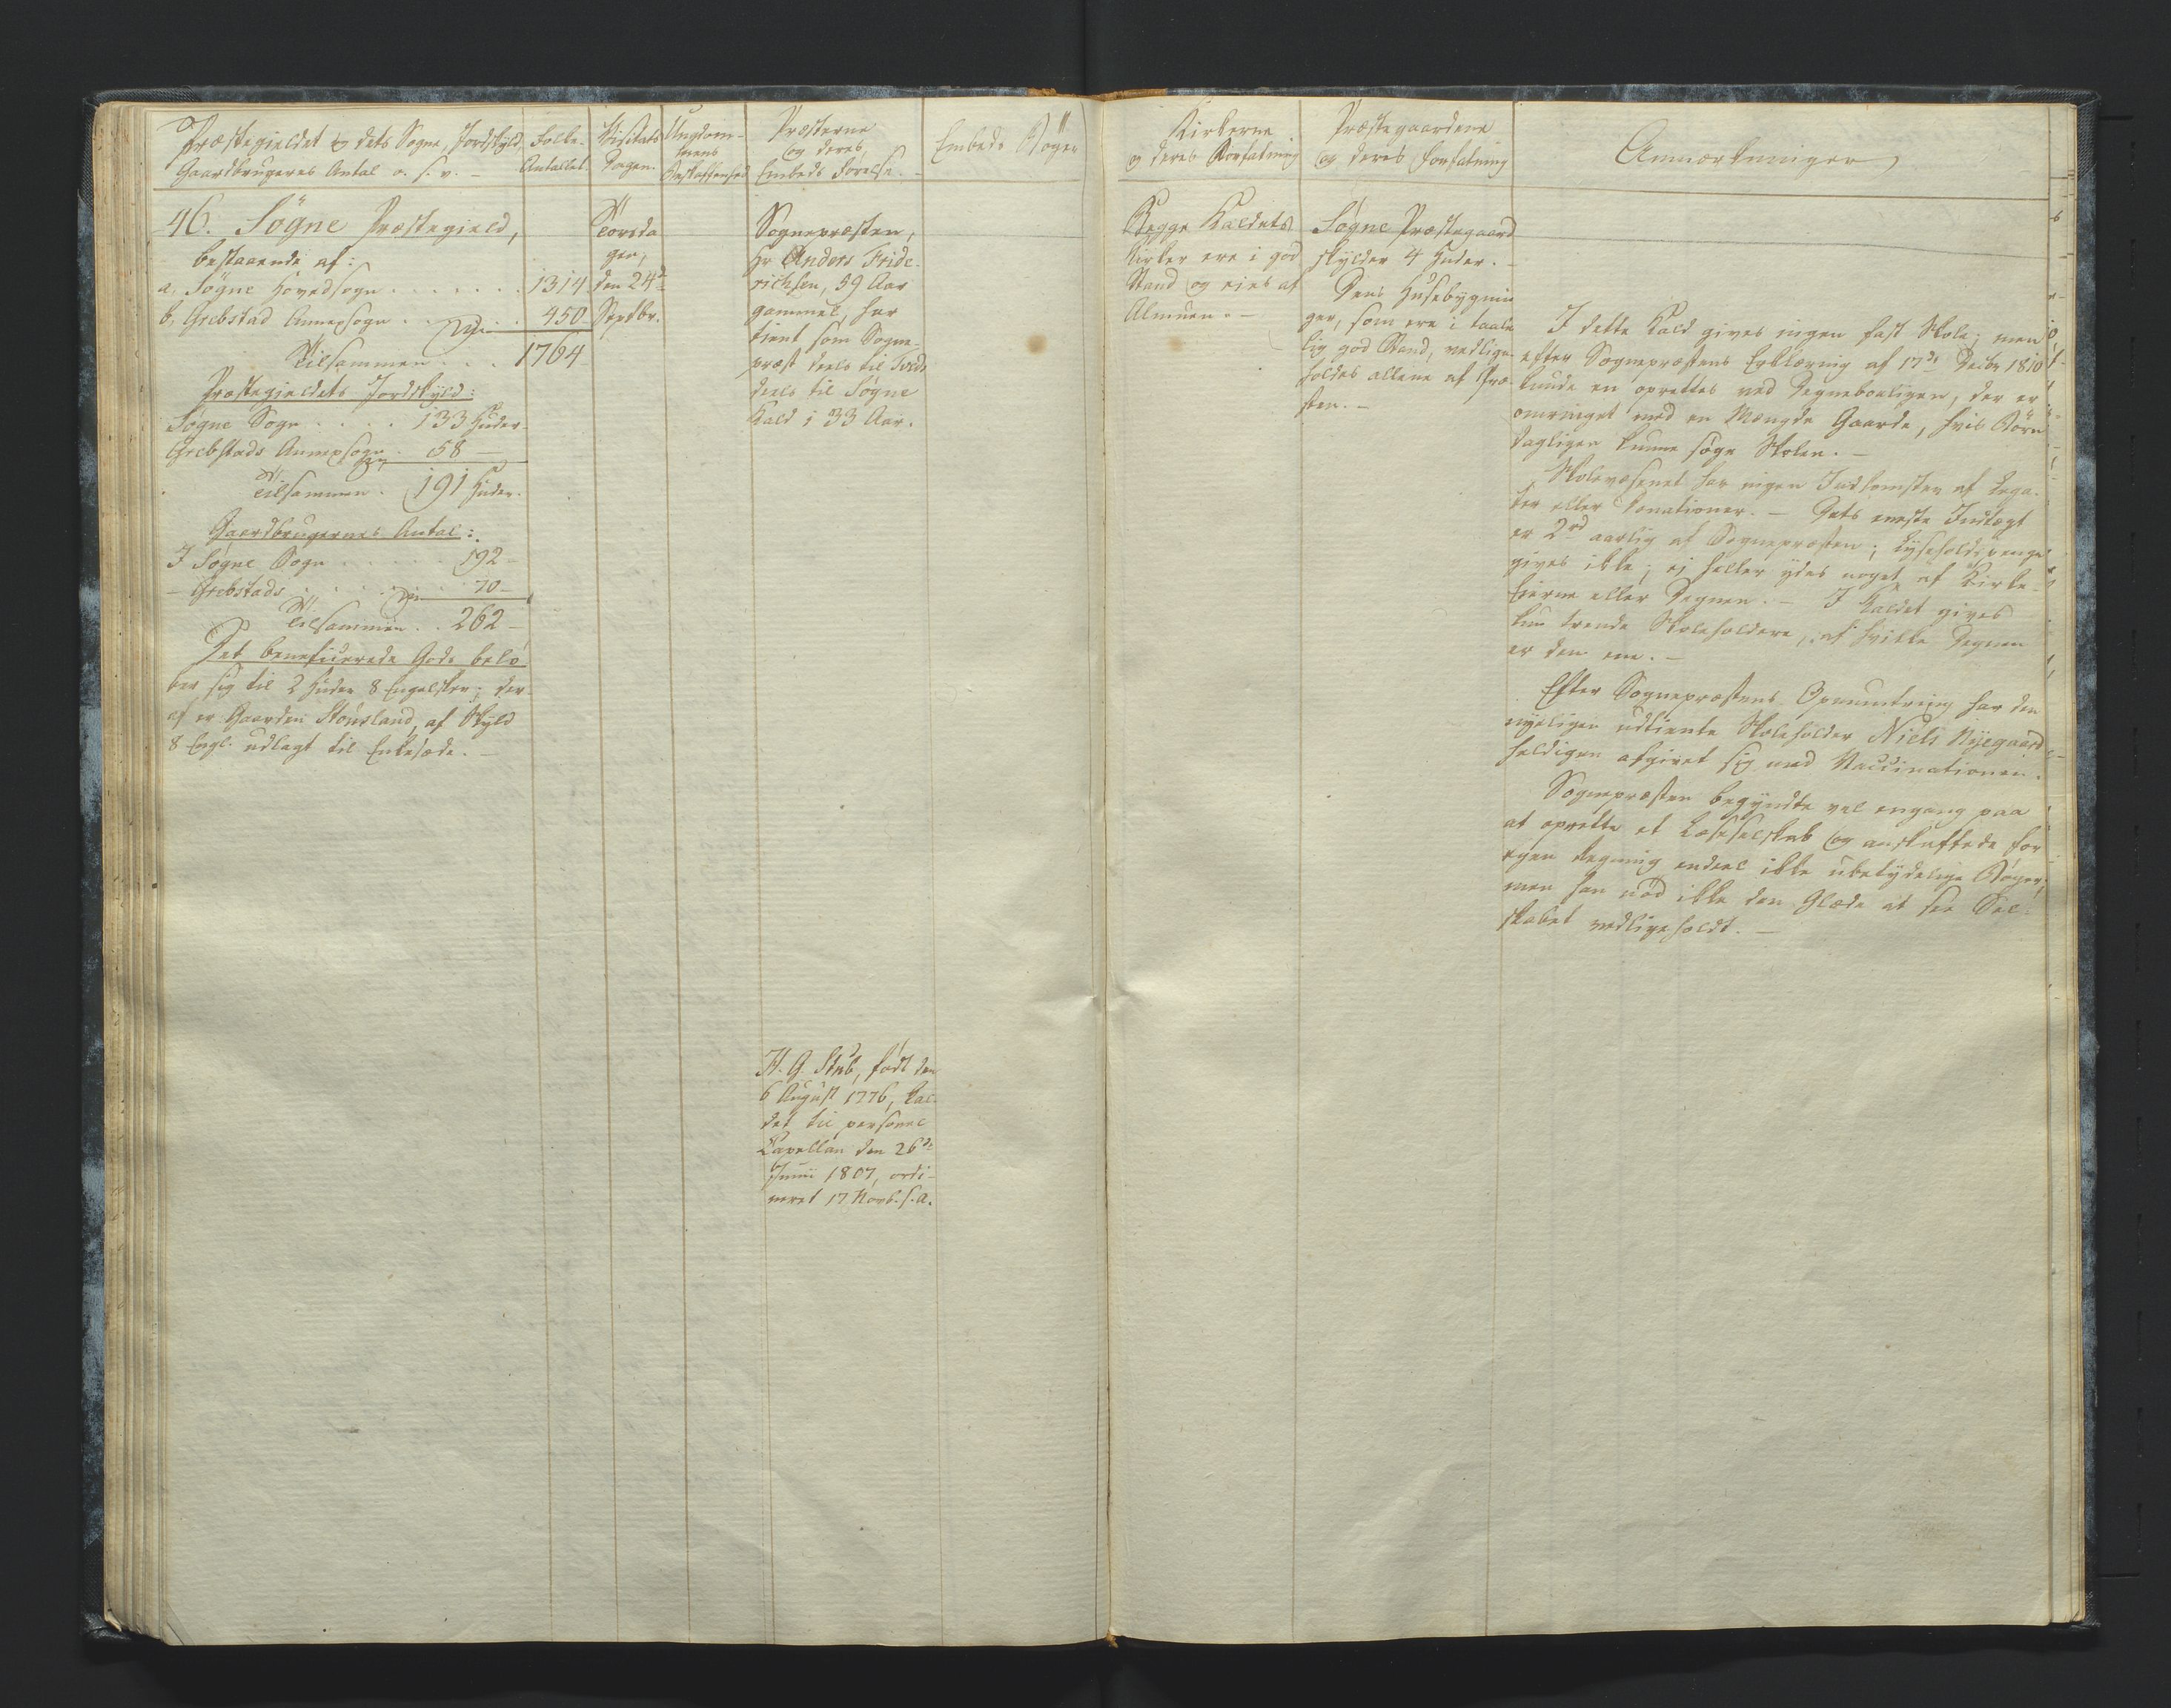 Præstegieldet & dets Sogne, Jordskyld,
Gaardbrugeres Antal o. s. v. –
Folke-
Antallet.
Visitats
Dagen.
Ungdom-
mens
Beskaffenhed
Præsterne
og deres
Embeds Førelse. –
Embeds Bøger
46. Søgne Præstegield,
bestaaende af:
a. Søgne Hovedsogn . . . . . . . 1314
b. Grebstad Annexsogn . . . . 450
Tilsammen . . . 1764
Præstegieldets Jordskyld:
Søgne Sogn . . . . 133 Huder
Grebstads Annexsogn . 58 –
Tilsammen . 191 Huder.
Gaardbrugernes Antal:
I Søgne Sogn . . . . . . 192 –
– Grebstads . . . . . . 70 –
Tilsammen . . 262 –
Det beneficerede Gods belø-
ber sig til 2 Huder 8 Engelsker; der-
af er Gaarden Stousland, af Skyld
8 Engl. udlagt til Enkesæde. –
Torsda
gen,
den 24de
Septbr.
Sognepræsten,
Hr Anders Fride-
richsen, 59 Aar
gammel, har
tient som Sogne-
præst deels til
deels til Søgne
Kald i 33 Aar.
H. G. Stub, født den
6 August 1776, kal-
det til personel
Capellan den 26de
Junii 1807, ordi-
neret 17 Novb. s. a.
Kirkerne
og deres Forfatning
Præstegaardene
og deres Forfatning
Anmærkninger
Begge Kaldets
Kirker ere i god
Stand og eies af
Almuen. –
Søgne Præstegaard
skylder 4 Huder. –
Dens Husebygnin
ger, som ere i taale
lig god Stand, vedlige-
holdes allene af Præ-
sten. –
I dette Kald gives ingen fast Skole; men
efter Sognepræstens Erklæring af 17de Decbr 1810
kunde en oprettes ved Degneboeligen, der er
omringet med en Mængde Gaarde, hvis Børn
dagligen kunne søge Skolen. –
Skolevæsenet har ingen Indkomster af Lega-
ter eller Donationer. – Dets eneste Indtægt
er 2rd aarlig af Sognepræsten; Lyseholdspenge
gives ikke; ej heller ydes noget af Kirke-
Eierne eller Degnen. – I Kaldet gives
kun trende Skoleholdere, af hvilke Degnen
er den ene. –
Efter Sognepræstens Opmuntring har den
nyeligen udtiente Skoleholder Niels Nyegaard
heldigen afgivet sig med Vaccinationen.
Sognepræsten begyndte vel engang paa
at oprette et Læseselskab og anskaffede for
egen Regning endeel ikke ubetydelige Bøger;
men han nød ikke den Glæde at see Sel-
skabet vedligeholdt. –